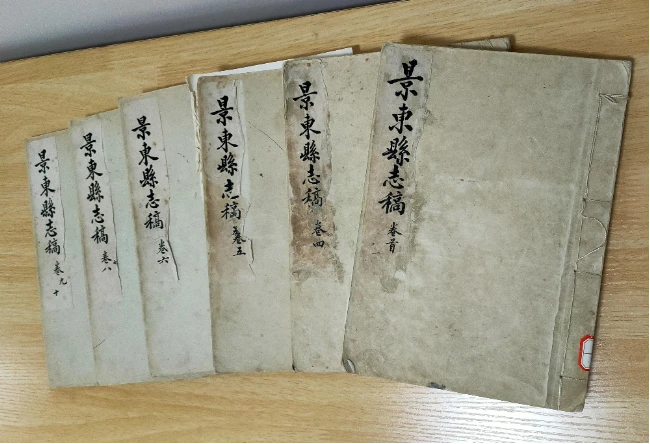 景東縣志稿 卷首
景東縣志稿 卷四
景東縣志稿 卷五
景東縣志稿 卷六
景東縣志稿 卷八
景東縣志稿 卷九十